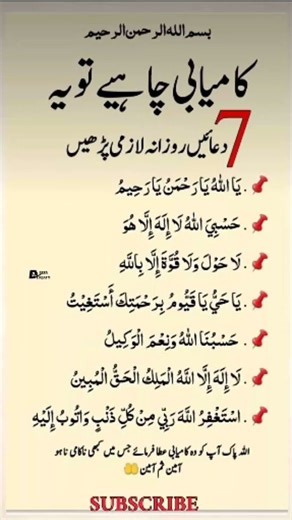 بسم الله الرحمن الرحیم
کامیابی چاہیے تو یہ
7 دعائیں روزانہ لازمی پڑھیں
يَا اللهُ يَا رَحْمَنُ يَا رَحِيمُ .
حَسْبِيَ اللهُ لَا إِلَهَ إِلَّا هُوَ .
لَا حَوْلَ وَلَا قُوَّةَ إِلَّا بِاللَّهِ .
يَا حَيُّ يَا قَيُّومُ بِرَحْمَتِكَ أَسْتَغِيثُ .
حَسْبُنَا اللهُ وَنِعْمَ الْوَكِيلُ .
لَا إِلَهَ إِلَّا اللَّهُ الْمَلِكُ الْحَقُّ الْمُبِينُ .
اسْتَغْفِرُ اللهَ رَبِّي مِنْ كُلِّ ذَنْبٍ وَاتُوبُ إِلَيْهِ .
اللہ پاک آپ کو وہ کامیابی عطا فرمائے جس میں کبھی ناکامی نا ہو
آمین ثم آمین 🤲
SUBSCRIBE